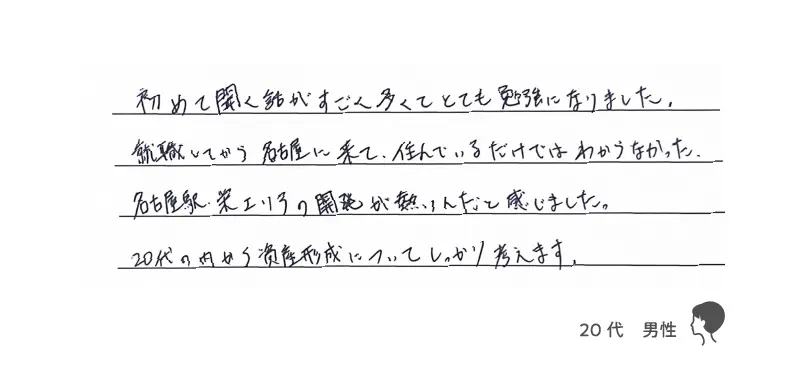 初めて聞く話がすごく多くてとても勉強になりました。
就職してから名古屋に来て、住んでいるだけではわからなかった
名古屋駅・栄エリアの開発が熱いんだと感じました。
20代の内から資産形成についてしっかり考えます。
20代 男性